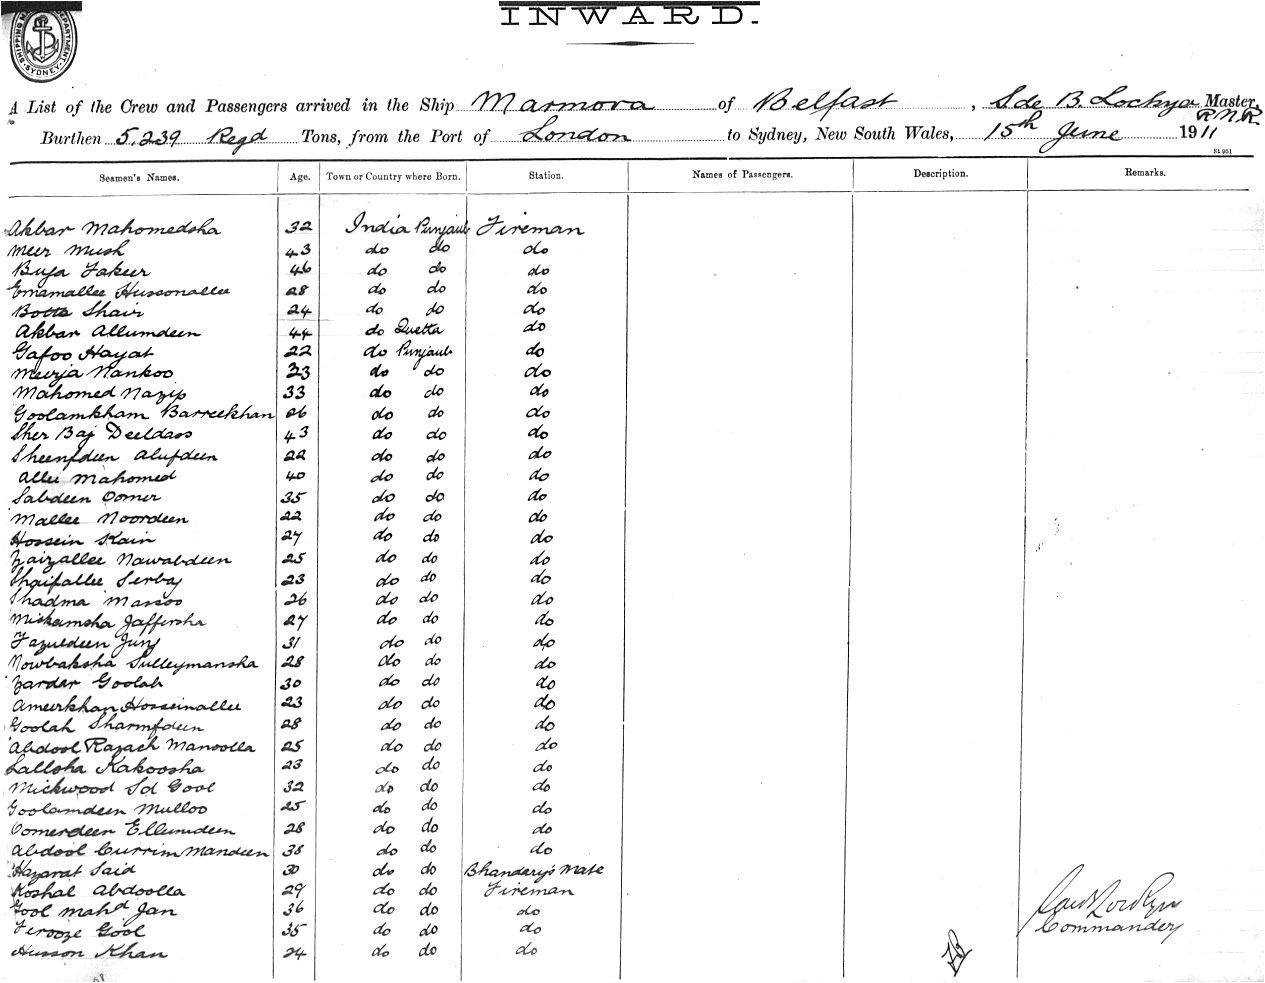 INWARD.
SHIPPING DEPARTMENT SYDNEY
A List of the Crew and Passengers arrived in the Ship Marmora of Belfast, S de B. Lockyer Master, R.N.R.
Burthen 5,239 Regd Tons, from the Port of London to Sydney, New South Wales, 15th June 1911
St 951
Seamen's Names. Age. Town or Country where Born. Station. Names of Passengers. Description. Remarks.
Akbar Mahomedsha 32 India Punjaub Fireman
Meer Mush 43 do do do
Buja Fakeer 46 do do do
Emamallee Hussonallee 28 do do do
Botta Shair 24 do do do
Akbar Allumdeen 44 do Quetta do
Gafoo Hayat 22 do Punjaub do
Meerja Nankoo 33 do do do
Mahomed Nazip 33 do do do
Goolamkham Barreekhan 26 do do do
Sher Baj Deeldass 43 do do do
Sheenfdeen Alufdeen 22 do do do
Allee Mahomed 40 do do do
Sabdeen Oomer 35 do do do
Mallee Noordeen 22 do do do
Hossein Skain 27 do do do
Zaizallee Nawabdeen 25 do do do
Shaifallee Serbaj 23 do do do
Shadma Massoo 26 do do do
Miskeensha Jaffersha 27 do do do
Fazuldeen Junj 31 do do do
Nowbaksha Sulleymansha 28 do do do
Zardar Goolab 30 do do do
Ameerkhan Hosseinallee 23 do do do
Goolah Sharmfdeen 28 do do do
Abdool Razack Manoolla 25 do do do
Lallsha Kakoosha 23 do do do
Mickwood Sd Gool 32 do do do
Goolamdeen Mulloo 25 do do do
Oomerdeen Ellumdeen 28 do do do
Abdool Currim Mandeen 38 do do do
Hazarat Said 30 do do Bhandary's Mate
Koshal Abdoolla 29 do do Fireman
Gool Mahd Jan 36 do do do
Ferooze Gool 35 do do do
Husson Khan 24 do do do
Commander